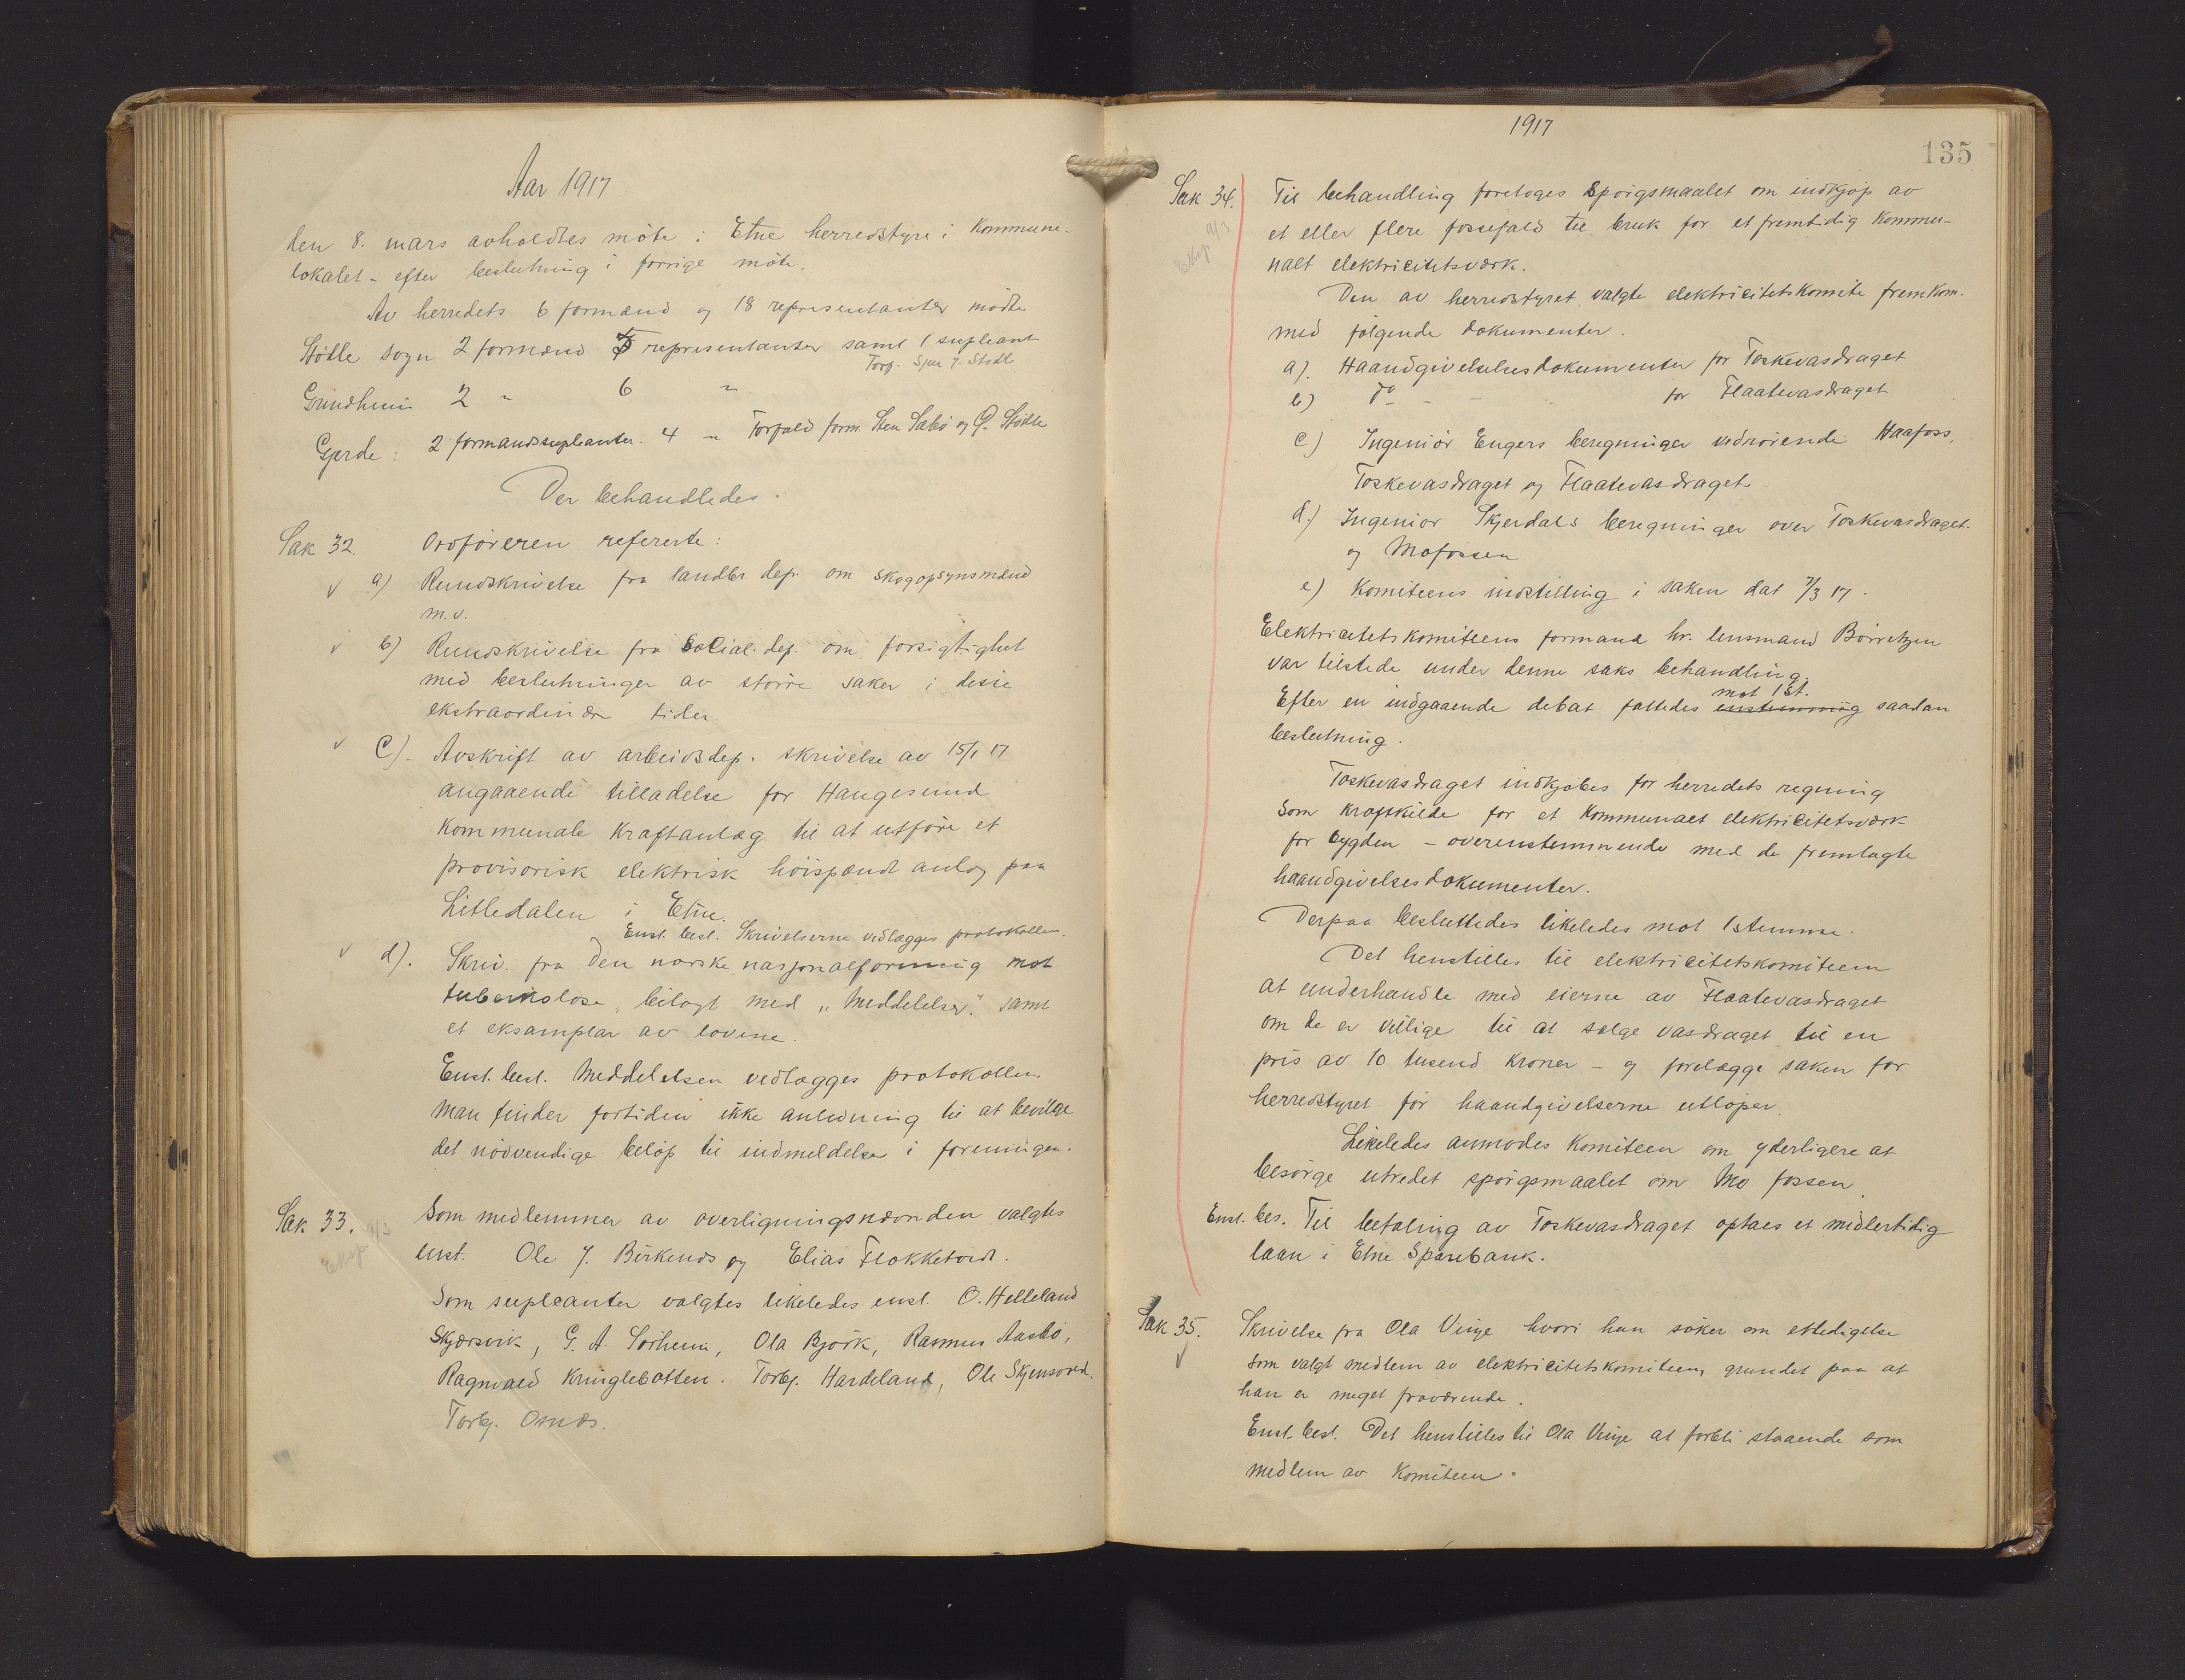 Aar 1917
den 8. mars avholdtes möte i Etne herredstyre i Kommune-
lokalet - efter beslutning i forrige möte.
Av herredets 6 formænd og 18 representanter mödte
Stödle sogn 2 formænd representanter samt 1 supleant
Grindheim 2 " 6 "
Gjerde: 2 formandssupleanter. 4 " Forfald form. Sten Sæbö og Stödle
Der behandledes.
Sak 32. Ordföreren refererte:
a) Rundskrivelse fra landbr. dep. om skogopsynsmænd
m. v.
b) Rundskrivelse fra social. dep. om forsigtighet
med beslutninger av större saker i disse
ekstraordinære tider.
c). Avskrift av arbeidsdep. skrivelse av 15/1 17
angaaende tilladelse for Haugesund
Kommunale Kraftanlæg til at utföre et
provisorisk elektrisk höispænd anlæg paa
Litledalen i Etne.
Enst. besl. Skrivelserne vedlægges protokollen.
d). Skriv. fra Den norske nasjonalforening mot
tuberkulose, bilagt med "Meddelelser". samt
et eksamplar av lovene.
Enst. besl. Meddelelsen vedlægges protokollen.
Man finder fortiden ikke anledning til at bevilge
det nödvendige belöp til indmeldelse i foreningen.
Sak 33. Som medlemmer av overligningsnævnden valgtes
9/3
Eksp
enst. Ole J. Birkenes og Elias Flokketvedt.
Som supleanter valgtes likeledes enst. O. Helleland
Skjersvik, G. A. Sörheim, Ola Björk, Rasmus Aasbö,
Ragnvald Kringlebotten. Torbj. Hardeland, Ole Skjensvold.
Torbj. Osnes.
1917
135
Sak 34. Til behandling foretoges Spörgsmaalet om indkjöp av
9/3
Eksp
et eller flere fossefald til bruk for et fremtidig Kommu-
nalt elektricitetsverk.
Den av herredstyret valgte elektricitetskomite fremkom.
med fölgende dokumenter.
a). Haandgivelsesdokumenter for Toskevasdraget
b) do - - - for Flaatevasdraget
c) Ingeniör Engers beregninger vedrörende Haafoss,
Toskevasdraget og Flaatevasdraget
d.) Ingeniör Skjerdals beregninger over Toskevasdraget.
og Mofossen
e) Komiteens indstilling i saken dat 7/3 17.
Elektricitetskomiteens formand hr. lensmand Börretzen
var tilstede under denne saks behandling.
mot 1 st.
Efter en indgaaende debat fattedes enstemmig saadan
beslutning.
Toskevasdraget indkjöbes for herredets regning
som kraftkilde for et kommunalt elektricitetsverk
for bygden - overensstemmende med de fremlagte
haandgivelsesdokumenter.
Derpaa besluttedes likeledes mot 1 stemme.
Det henstilles til elektricitetskomiteen
at underhandle med eierne av Flaatevasdraget
om de er villige til at sælge vasdraget til en
pris av 10 tusend kroner - og forelægge saken for
herredstyret för haandgivelserne utlöper.
Likeledes anmodes Komiteen om yderligere at
besörge utredet spörgsmaalet om Mo fossen.
Enst. bes. Til betaling av Toskevasdraget optaes et midlertidig
laan i Etne Sparebank.
Sak 35. Skrivelse fra Ola Vinje hvori han söker om etledigelse
som valgt medlem av elektricitetskomiteen, grundet paa at
han er meget fraværende.
Enst. besl. Det henstilles til Ola Vinje at forbli staaende som
medlem av Komiteen.